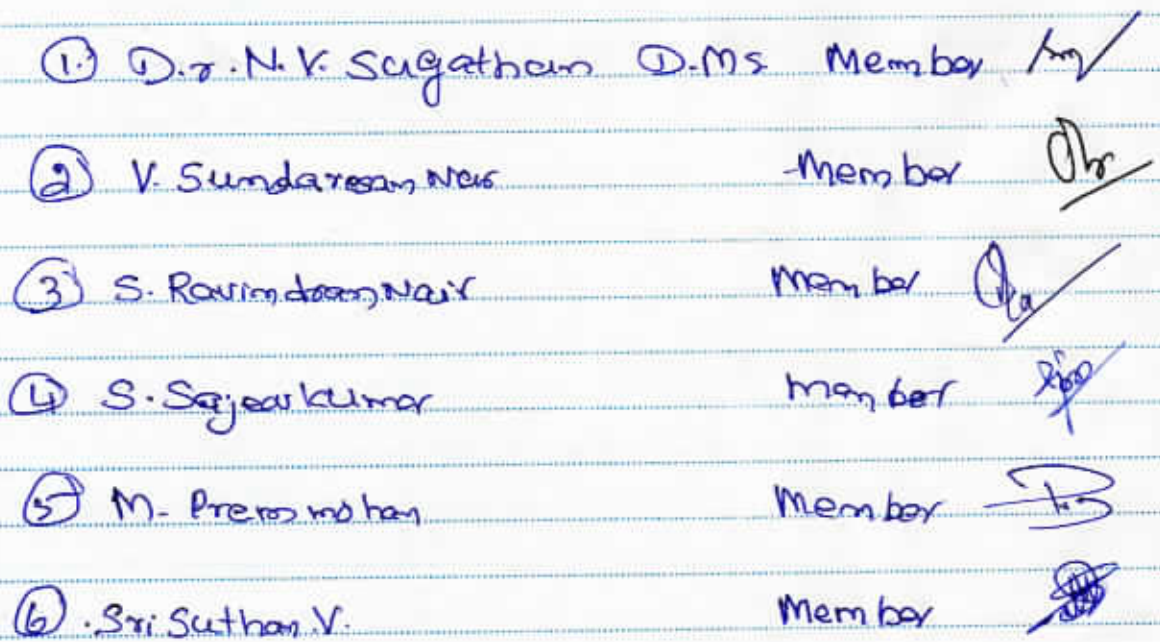 1. D.r. N.V. Sugathan D.Ms. Member
2 V. Sundaresan Nair Member
3 S. Ravindran Nair Member
4 S. Sajeev kumar Member
5 M. Prem mohan Member
6. Sri Suthan V. Member